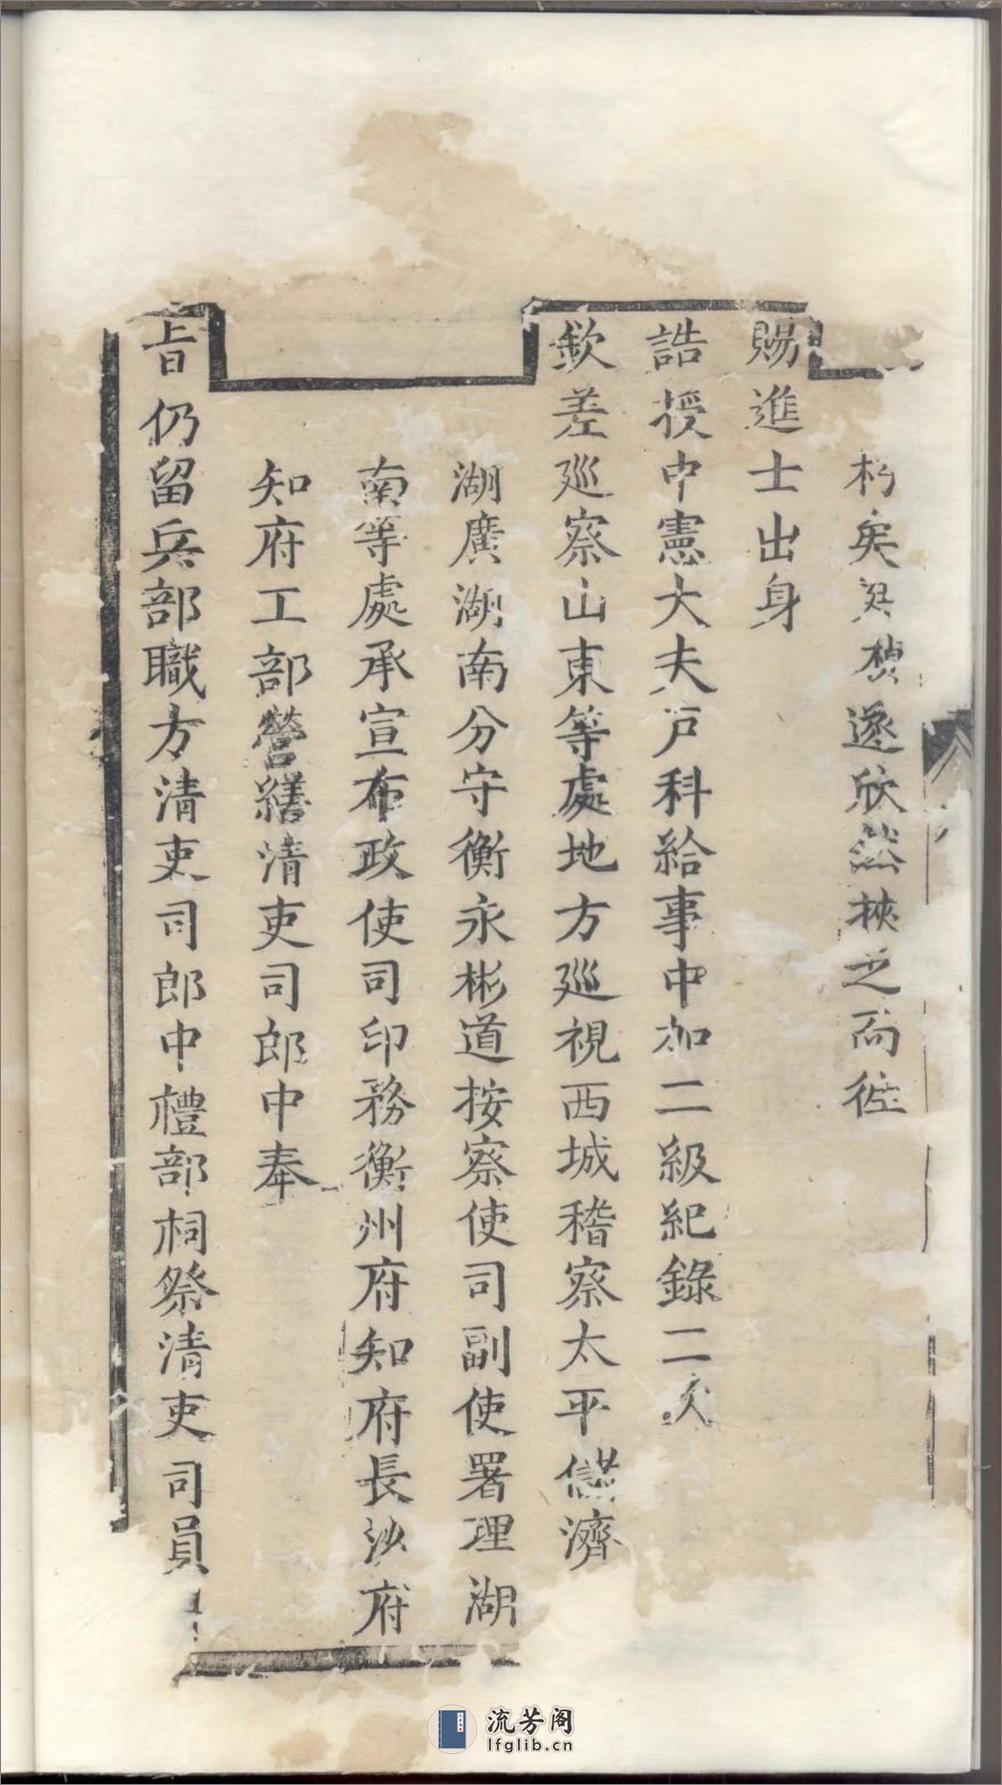 朽矣 遂欣然挾之而徃
賜進士出身
誥授中憲大夫戸科給事中加二級紀錄二次
欽差巡察山東等處地方巡視西城稽察太平儲濟
湖廣湖南分守衡永彬道按察使司副使署理湖
南等處承宣布政使司印務衡州府知府長沙府
知府工部營繕清吏司郎中奉
旨仍留兵部職方清吏司郎中禮部祠祭清吏司員
流芳阁
lfglib.cn